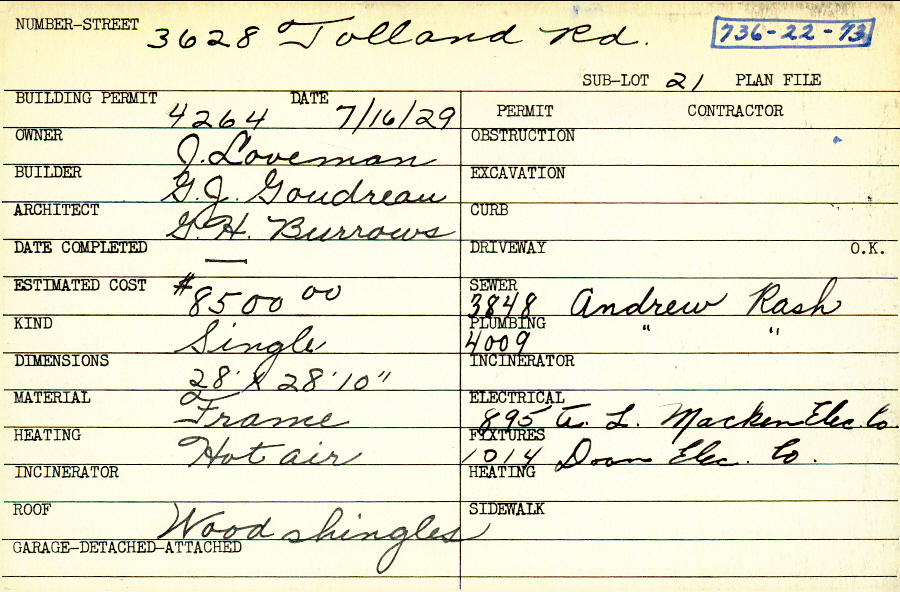 NUMBER-STREET 3628 Tolland Rd. 736-22-73
SUB-LOT 21 PLAN FILE
BUILDING PERMIT 4264 DATE 7/16/29
PERMIT CONTRACTOR
OWNER J. Loveman
OBSTRUCTION
BUILDER G.J. Goudreau
EXCAVATION
ARCHITECT G.H. Burrows
CURB
DATE COMPLETED —
DRIVEWAY O.K.
ESTIMATED COST $8500 00
SEWER 3848 Andrew Rash
KIND Single
PLUMBING 4009 " "
DIMENSIONS 28' X 28'10"
INCINERATOR
MATERIAL Frame
ELECTRICAL 895 L. Macken Elec. Co.
HEATING Hot air
FIXTURES 1014 Doan Elec. Co.
INCINERATOR
HEATING
ROOF Wood shingles
SIDEWALK
GARAGE-DETACHED-ATTACHED